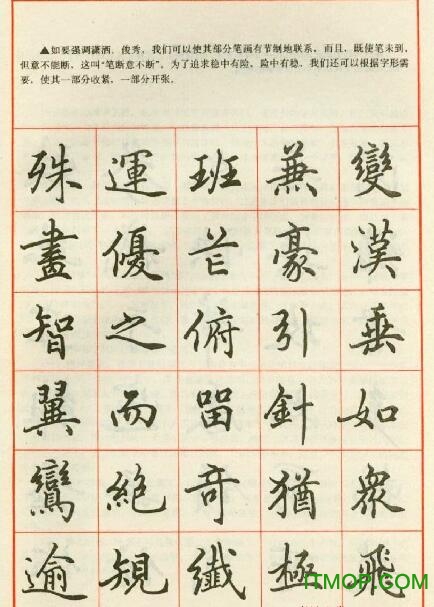 ▲如要强调潇洒，俊秀，我们可以使其部分笔画有节制地联系。而且，既使笔未到，
但意不能断，这叫“笔断意不断”。为了追求稳中有险，险中有稳，我们还可以根据字形需
要，使其一部分收紧，一部分开张。
殊運班兼變
畫優芒豪漢
智之俯引乘
翼而留針如
鸞絕奇猶衆
逾規纖極飛
ITMOP.COM